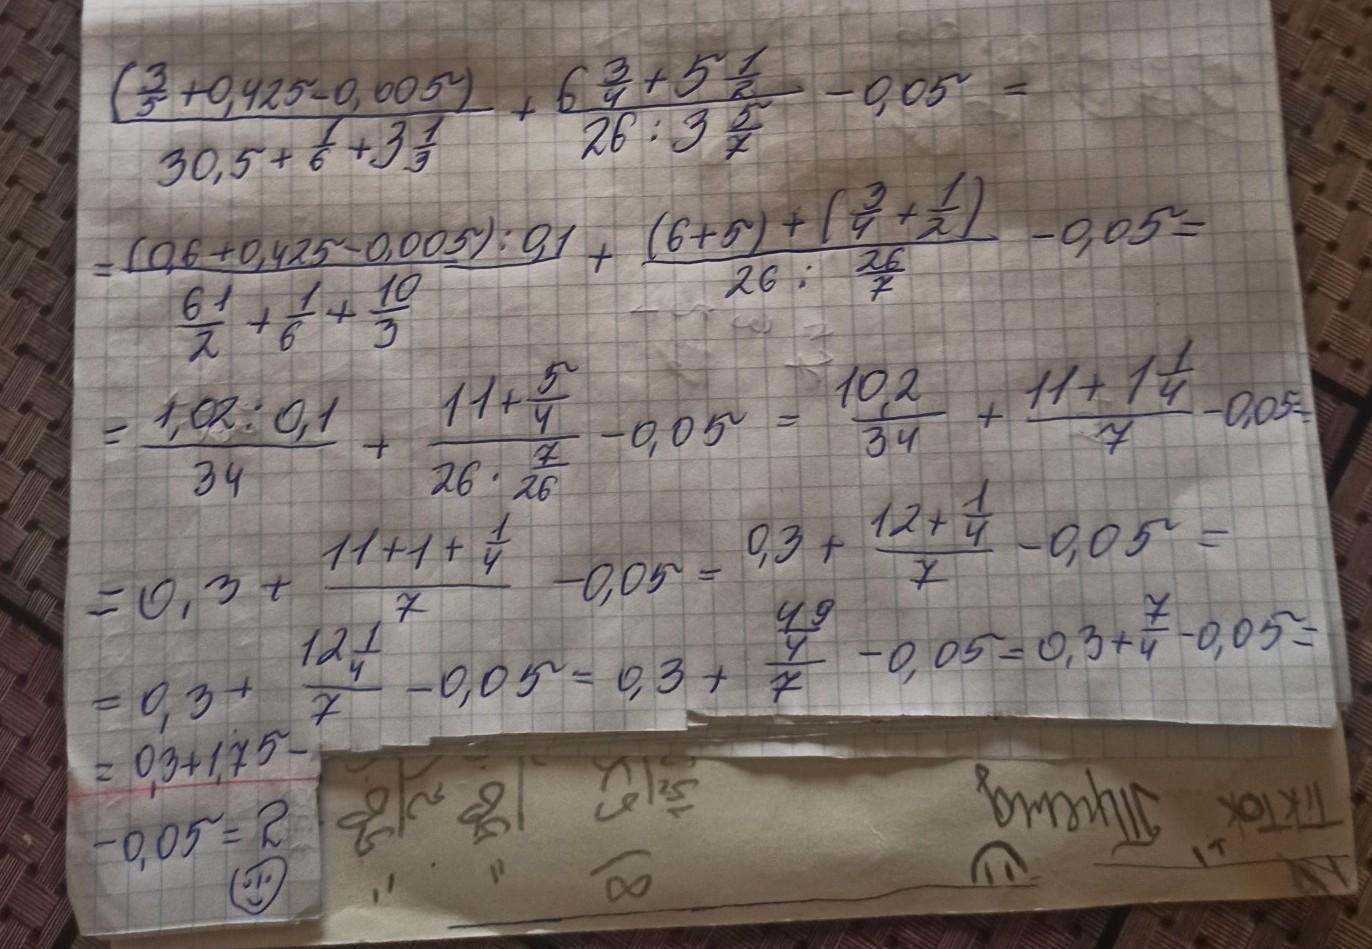 (3/5 + 0,425 - 0,005) / (30,5 + 1/6 + 3 1/3) + (6 3/4 + 5 1/2) / (26 : 3 5/7) - 0,05 =
= (0,6 + 0,425 - 0,005) : 0,1 / (61/2 + 1/6 + 10/3) + ((6+5) + (3/4 + 1/2)) / (26 : 26/7) - 0,05 =
= (1,02 : 0,1) / 34 + (11 + 5/4) / (26 · 7/26) - 0,05 = 10,2/34 + (11 + 1 1/4) / 7 - 0,05 =
= 0,3 + (11 + 1 + 1/4) / 7 - 0,05 = 0,3 + (12 + 1/4) / 7 - 0,05 =
= 0,3 + (12 1/4) / 7 - 0,05 = 0,3 + (49/4) / 7 - 0,05 = 0,3 + 7/4 - 0,05 =
= 0,3 + 1,75 -
- 0,05 = 2
TikTok